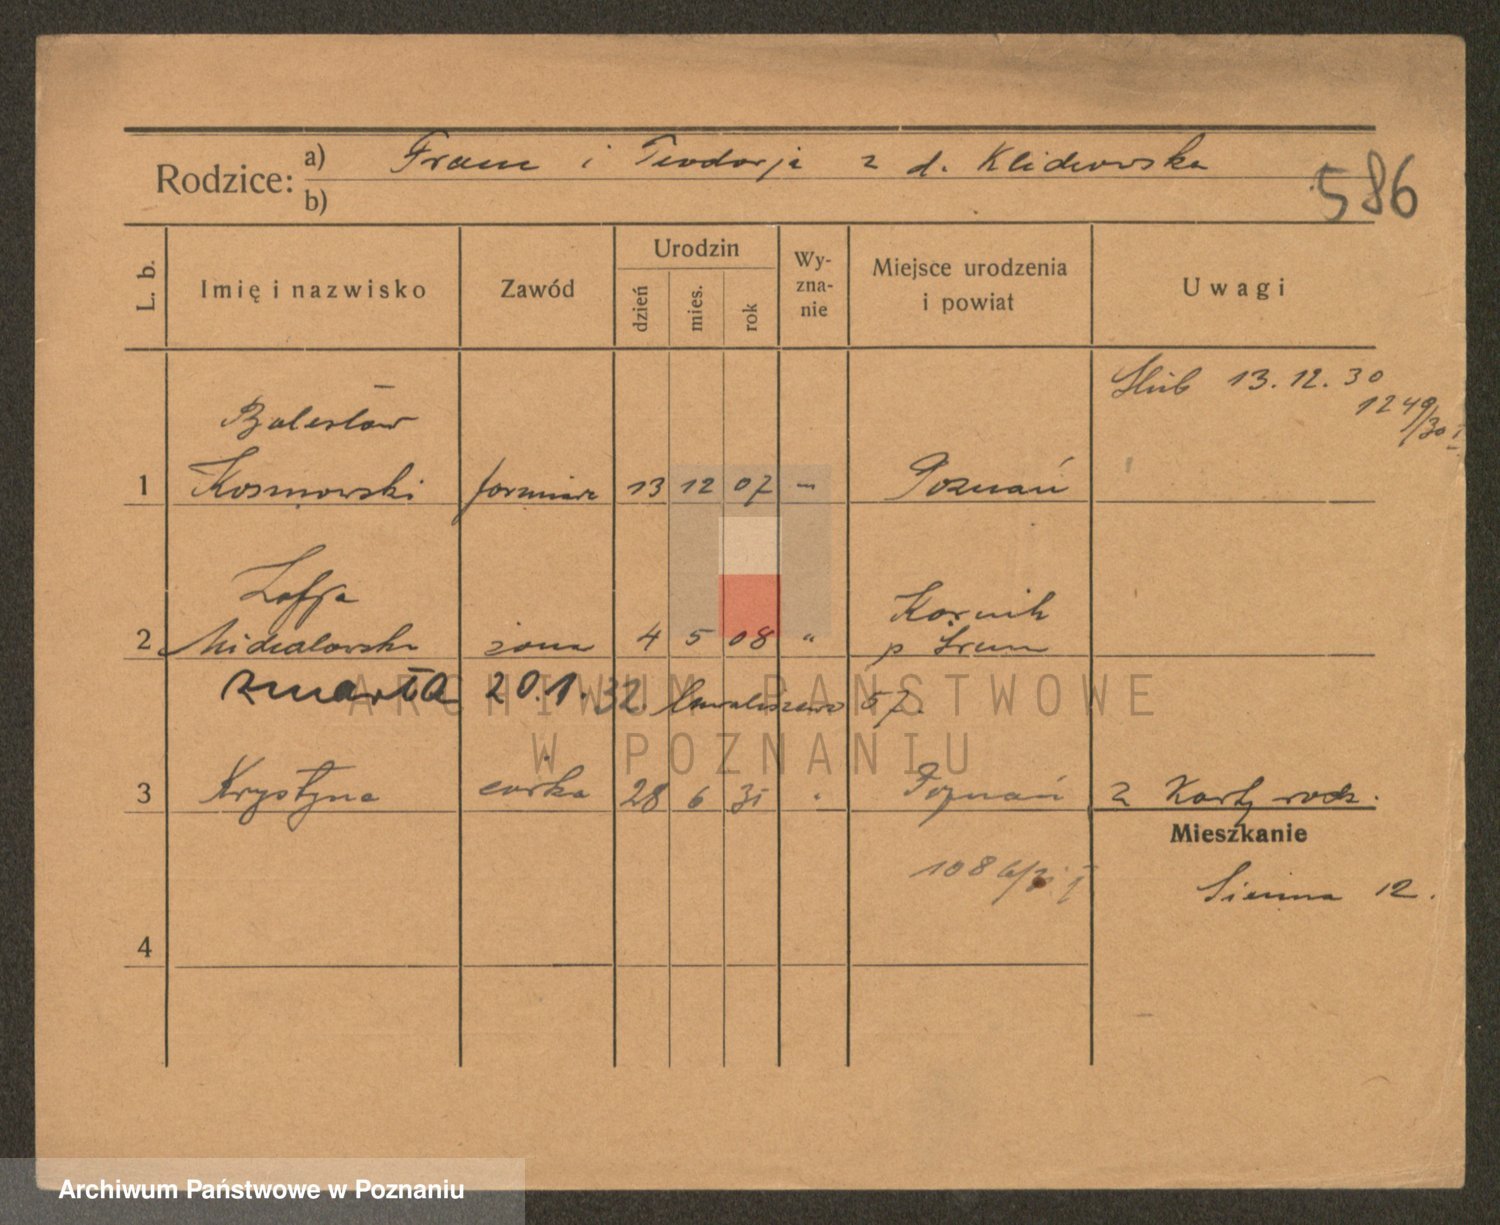 Rodzice: a) Franc i Teodorja z d. Klidewska
b)
586
L. b.
Imię i nazwisko
Zawód
Urodzin
dzień
mies.
rok
Wy-
zna-
nie
Miejsce urodzenia
i powiat
Uwagi
Ślub 13.12.30
1249/30 I
Bolesław
1 Kosmowski formiarz 13 12 07 — Poznań
Zofja
Kórnik
2 żona 4 5 08 "
p Śrem
zmarła 20.1.32. 57.
3 Krystyna córka 28 6 31 " Poznań z Karty rodz.
Mieszkanie
Sienna 12.
4
ARCHIWUM PAŃSTWOWE
W POZNANIU
Archiwum Państwowe w Poznaniu